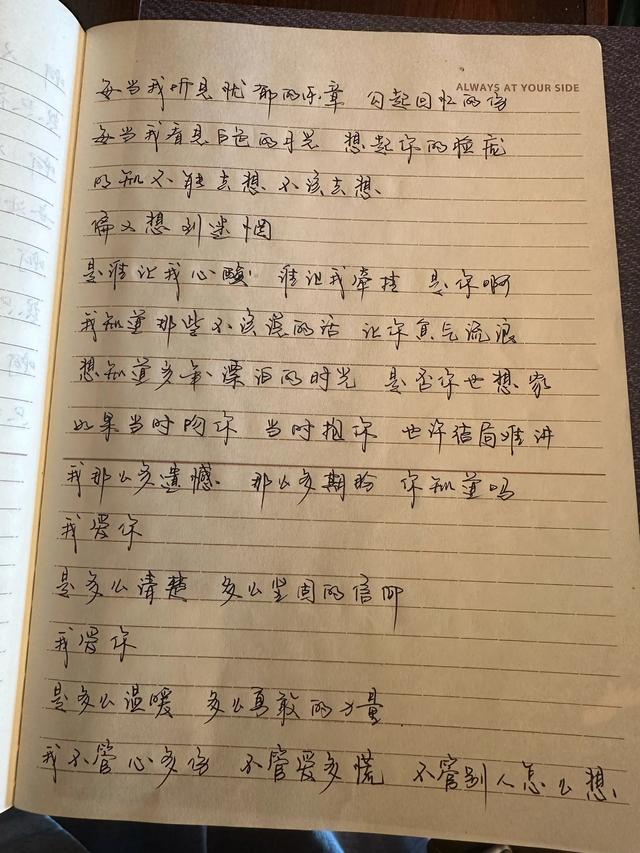 ALWAYS AT YOUR SIDE
每当我听见忧郁的乐章 勾起回忆的伤
每当我看见白色的月光 想起你的脸庞
明知不能去想 不该去想
偏又想到迷惘
是谁让我心酸 谁让我牵挂 是你啊
我知道那些不该说的话 让你负气流浪
想知道多年漂泊的时光 是否你也想家
如果当时吻你 当时抱你 也许结局难讲
我那么多遗憾 那么多期盼 你知道吗
我爱你
是多么清楚 多么坚固的信仰
我爱你
是多么温暖 多么勇敢的力量
我不管心多伤 不管爱多慌 不管别人怎么想